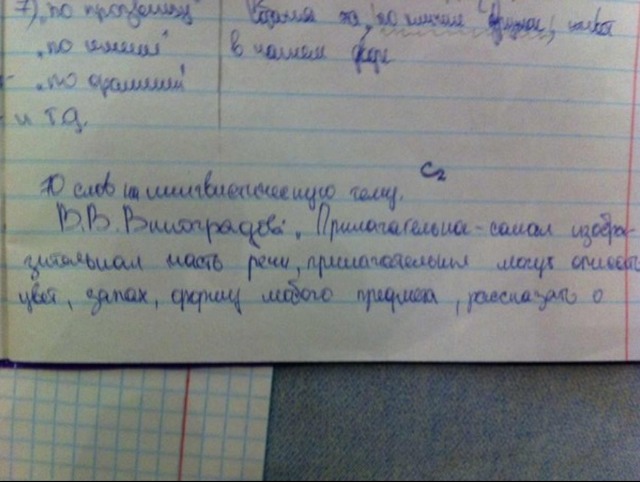 7) „по прозвищу"
„по имени"
„по фамилии"
и т.д.
в нашем
С2
70 слов на лингвистическую тему.
В.В. Виноградов: „Прилагательное - самая изобра-
зительная часть речи, прилагательные могут описать
цвет, запах, форму любого предмета, рассказать о